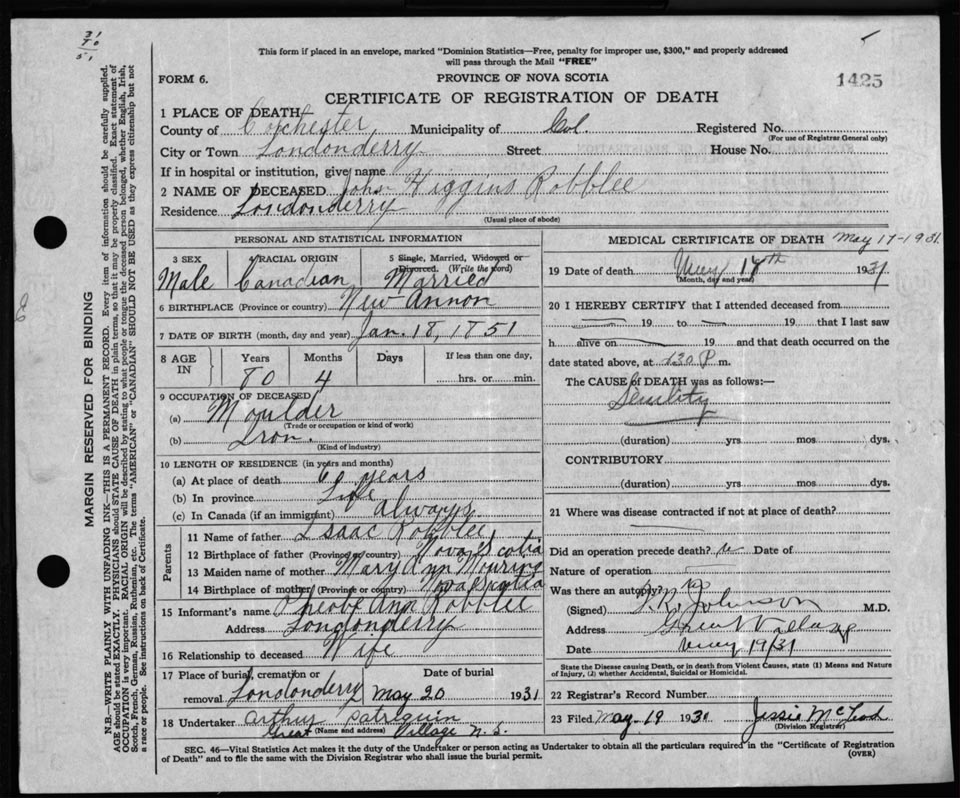 31
This form if placed in an envelope, marked "Dominion Statistics—Free, penalty for improper use, $300," and properly addressed
will pass through the Mail "FREE"
FORM 6.
PROVINCE OF NOVA SCOTIA
1425
CERTIFICATE OF REGISTRATION OF DEATH
1 PLACE OF DEATH
County of Colchester, Municipality of Col. Registered No.
(For use of Registrar General only)
City or Town Londonderry Street House No.
If in hospital or institution, give name
2 NAME OF DECEASED John Higgins Robblee
Residence Londonderry
(Usual place of abode)
PERSONAL AND STATISTICAL INFORMATION
3 SEX
Male
RACIAL ORIGIN
Canadian
5 Single, Married, Widowed or
Divorced. (Write the word)
Married
6 BIRTHPLACE (Province or country) New Annon
7 DATE OF BIRTH (month, day and year) Jan. 18, 1851
8 AGE IN
Years Months Days
If less than one day,
hrs. or min.
80 4
9 OCCUPATION OF DECEASED
(a) Moulder
(Trade or occupation or kind of work)
(b) Iron.
(Kind of industry)
10 LENGTH OF RESIDENCE (in years and months)
(a) At place of death years
(b) In province Life
(c) In Canada (if an immigrant) always
Parents
11 Name of father Isaac Robblee
12 Birthplace of father (Province or country) Nova Scotia
13 Maiden name of mother Mary Ann
14 Birthplace of mother (Province or country) Nova Scotia
15 Informant's name Pheobe Ann Robblee
Address Londonderry
16 Relationship to deceased Wife
17 Place of burial, cremation or
removal Londonderry
Date of burial
May 20 1931
18 Undertaker Arthur Patriquin
(Name and address)
Great Village N. S.
MEDICAL CERTIFICATE OF DEATH May 17-1931
19 Date of death May 18th 1931
(Month, day and year)
20 I HEREBY CERTIFY that I attended deceased from
19 to 19 that I last saw
h alive on 19 and that death occurred on the
date stated above, at 30 P m.
The CAUSE of DEATH was as follows:—
Senility
(duration) yrs mos dys.
CONTRIBUTORY
(duration) yrs mos dys.
21 Where was disease contracted if not at place of death?
Did an operation precede death? Date of
Nature of operation
Was there an autopsy? no
(Signed) Johnson M.D.
Address Great Village
Date May 19/31
State the Disease causing Death, or in death from Violent Causes, state (1) Means and Nature
of Injury, (2) whether Accidental, Suicidal or Homicidal.
22 Registrar's Record Number
23 Filed May 19 1931 Jessie McLeod
(Division Registrar)
SEC. 46—Vital Statistics Act makes it the duty of the Undertaker or person acting as Undertaker to obtain all the particulars required in the "Certificate of Registration
of Death" and to file the same with the Division Registrar who shall issue the burial permit.
(OVER)
MARGIN RESERVED FOR BINDING
N.B.—WRITE PLAINLY WITH UNFADING INK—THIS IS A PERMANENT RECORD. Every item of information should be carefully supplied.
AGE should be stated EXACTLY. PHYSICIANS should STATE CAUSE OF DEATH in plain terms, so that it may be properly classified. Exact statement of
OCCUPATION is very important. RACIAL ORIGIN will be described by stating to what people or tongue the deceased person belonged, whether English, Irish,
Scotch, French, German, Russian, Ruthenian, etc. The terms "AMERICAN" or "CANADIAN" SHOULD NOT BE USED as they express citizenship but not
a race or people. See instructions on back of Certificate.